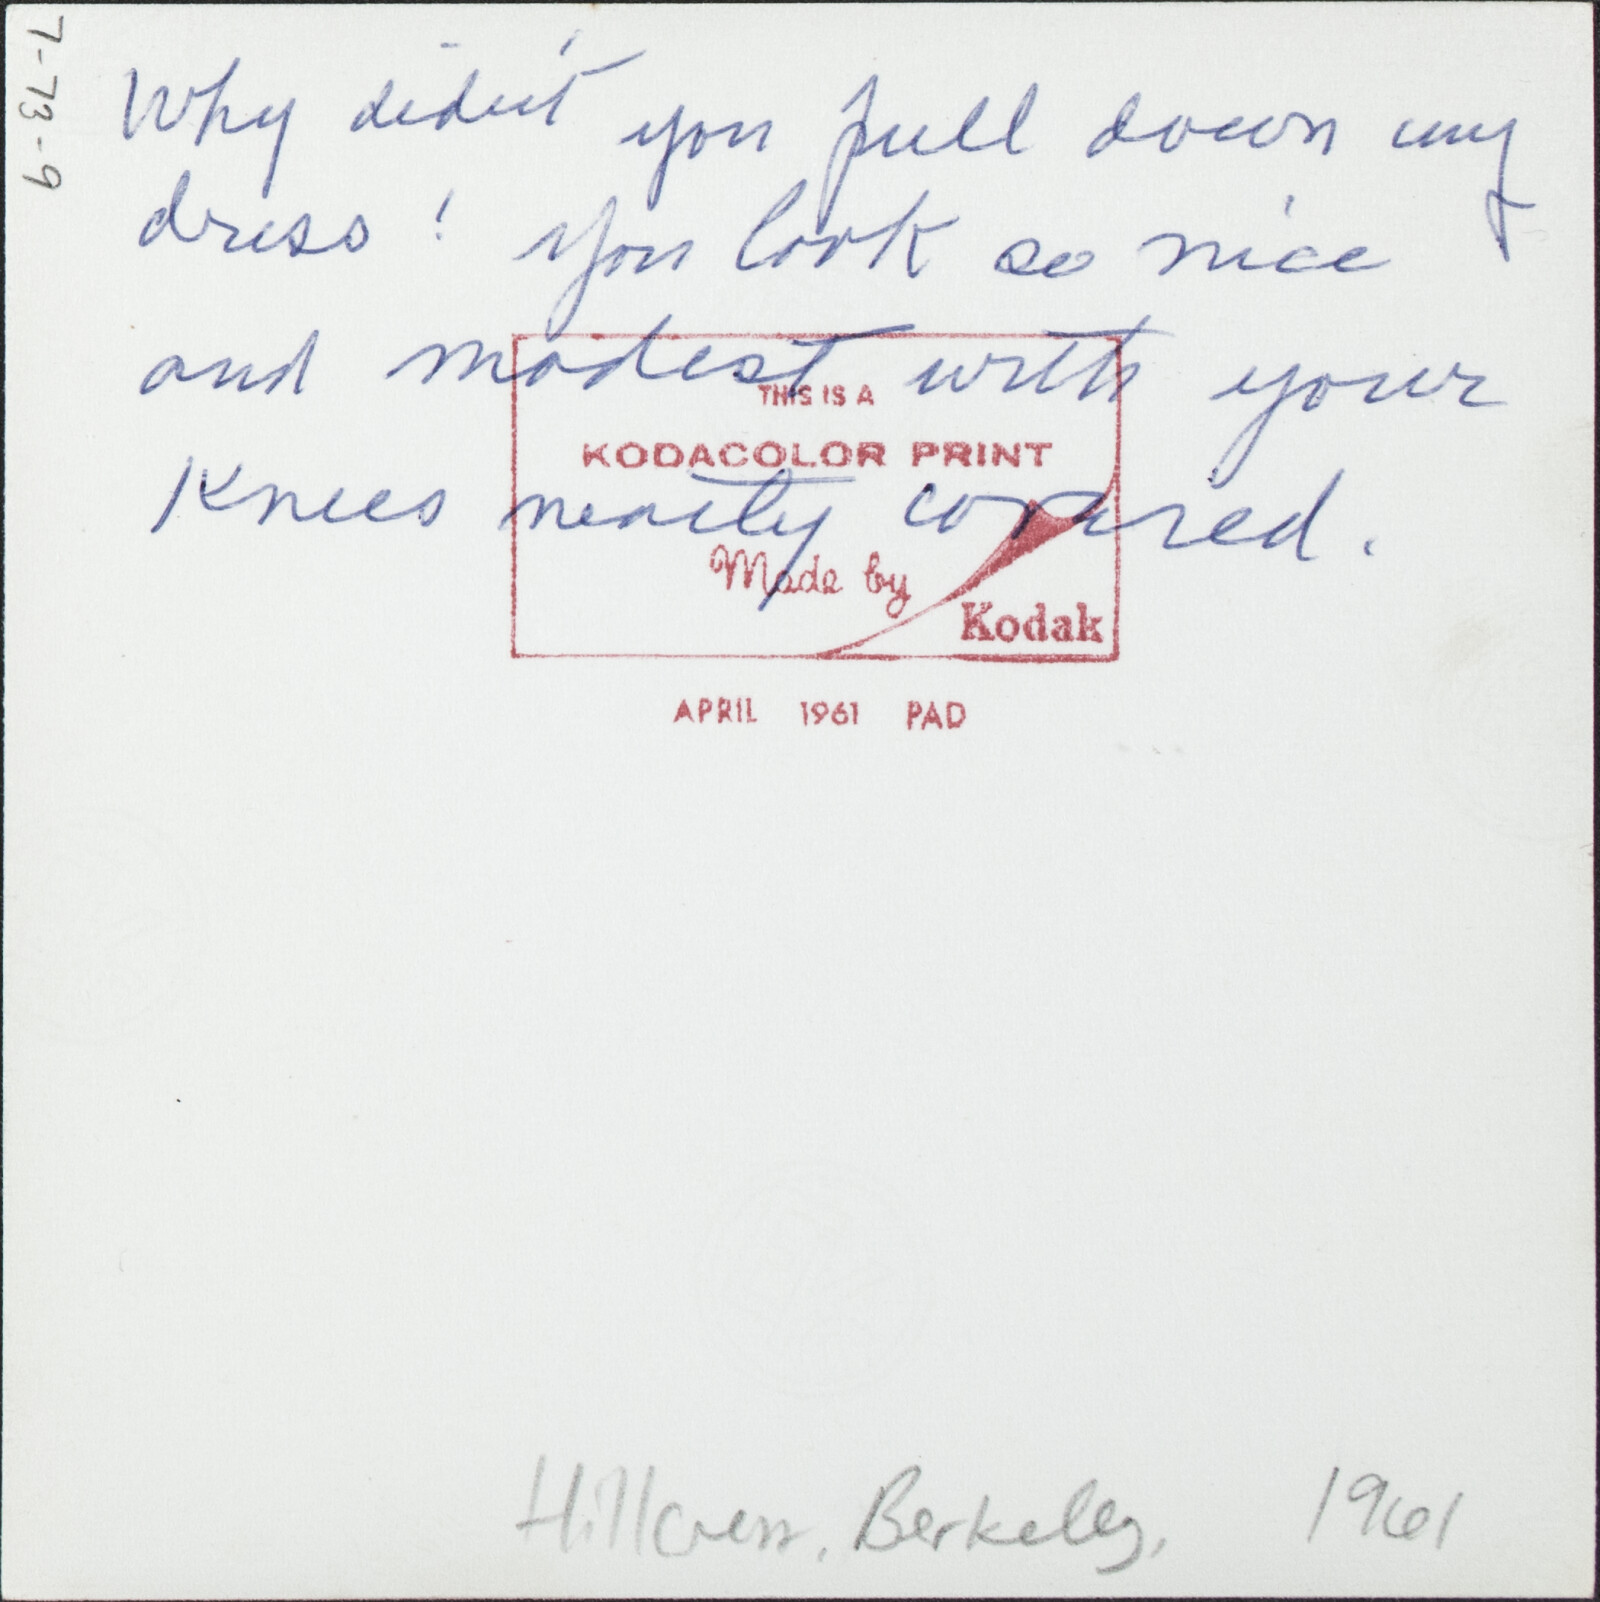 7-73-9
Why didn't you pull down my
dress! You look so nice
and modest with your
Knees neatly covered.
THIS IS A
KODACOLOR PRINT
Made by
Kodak
APRIL 1961 PAD
Berkeley, 1961